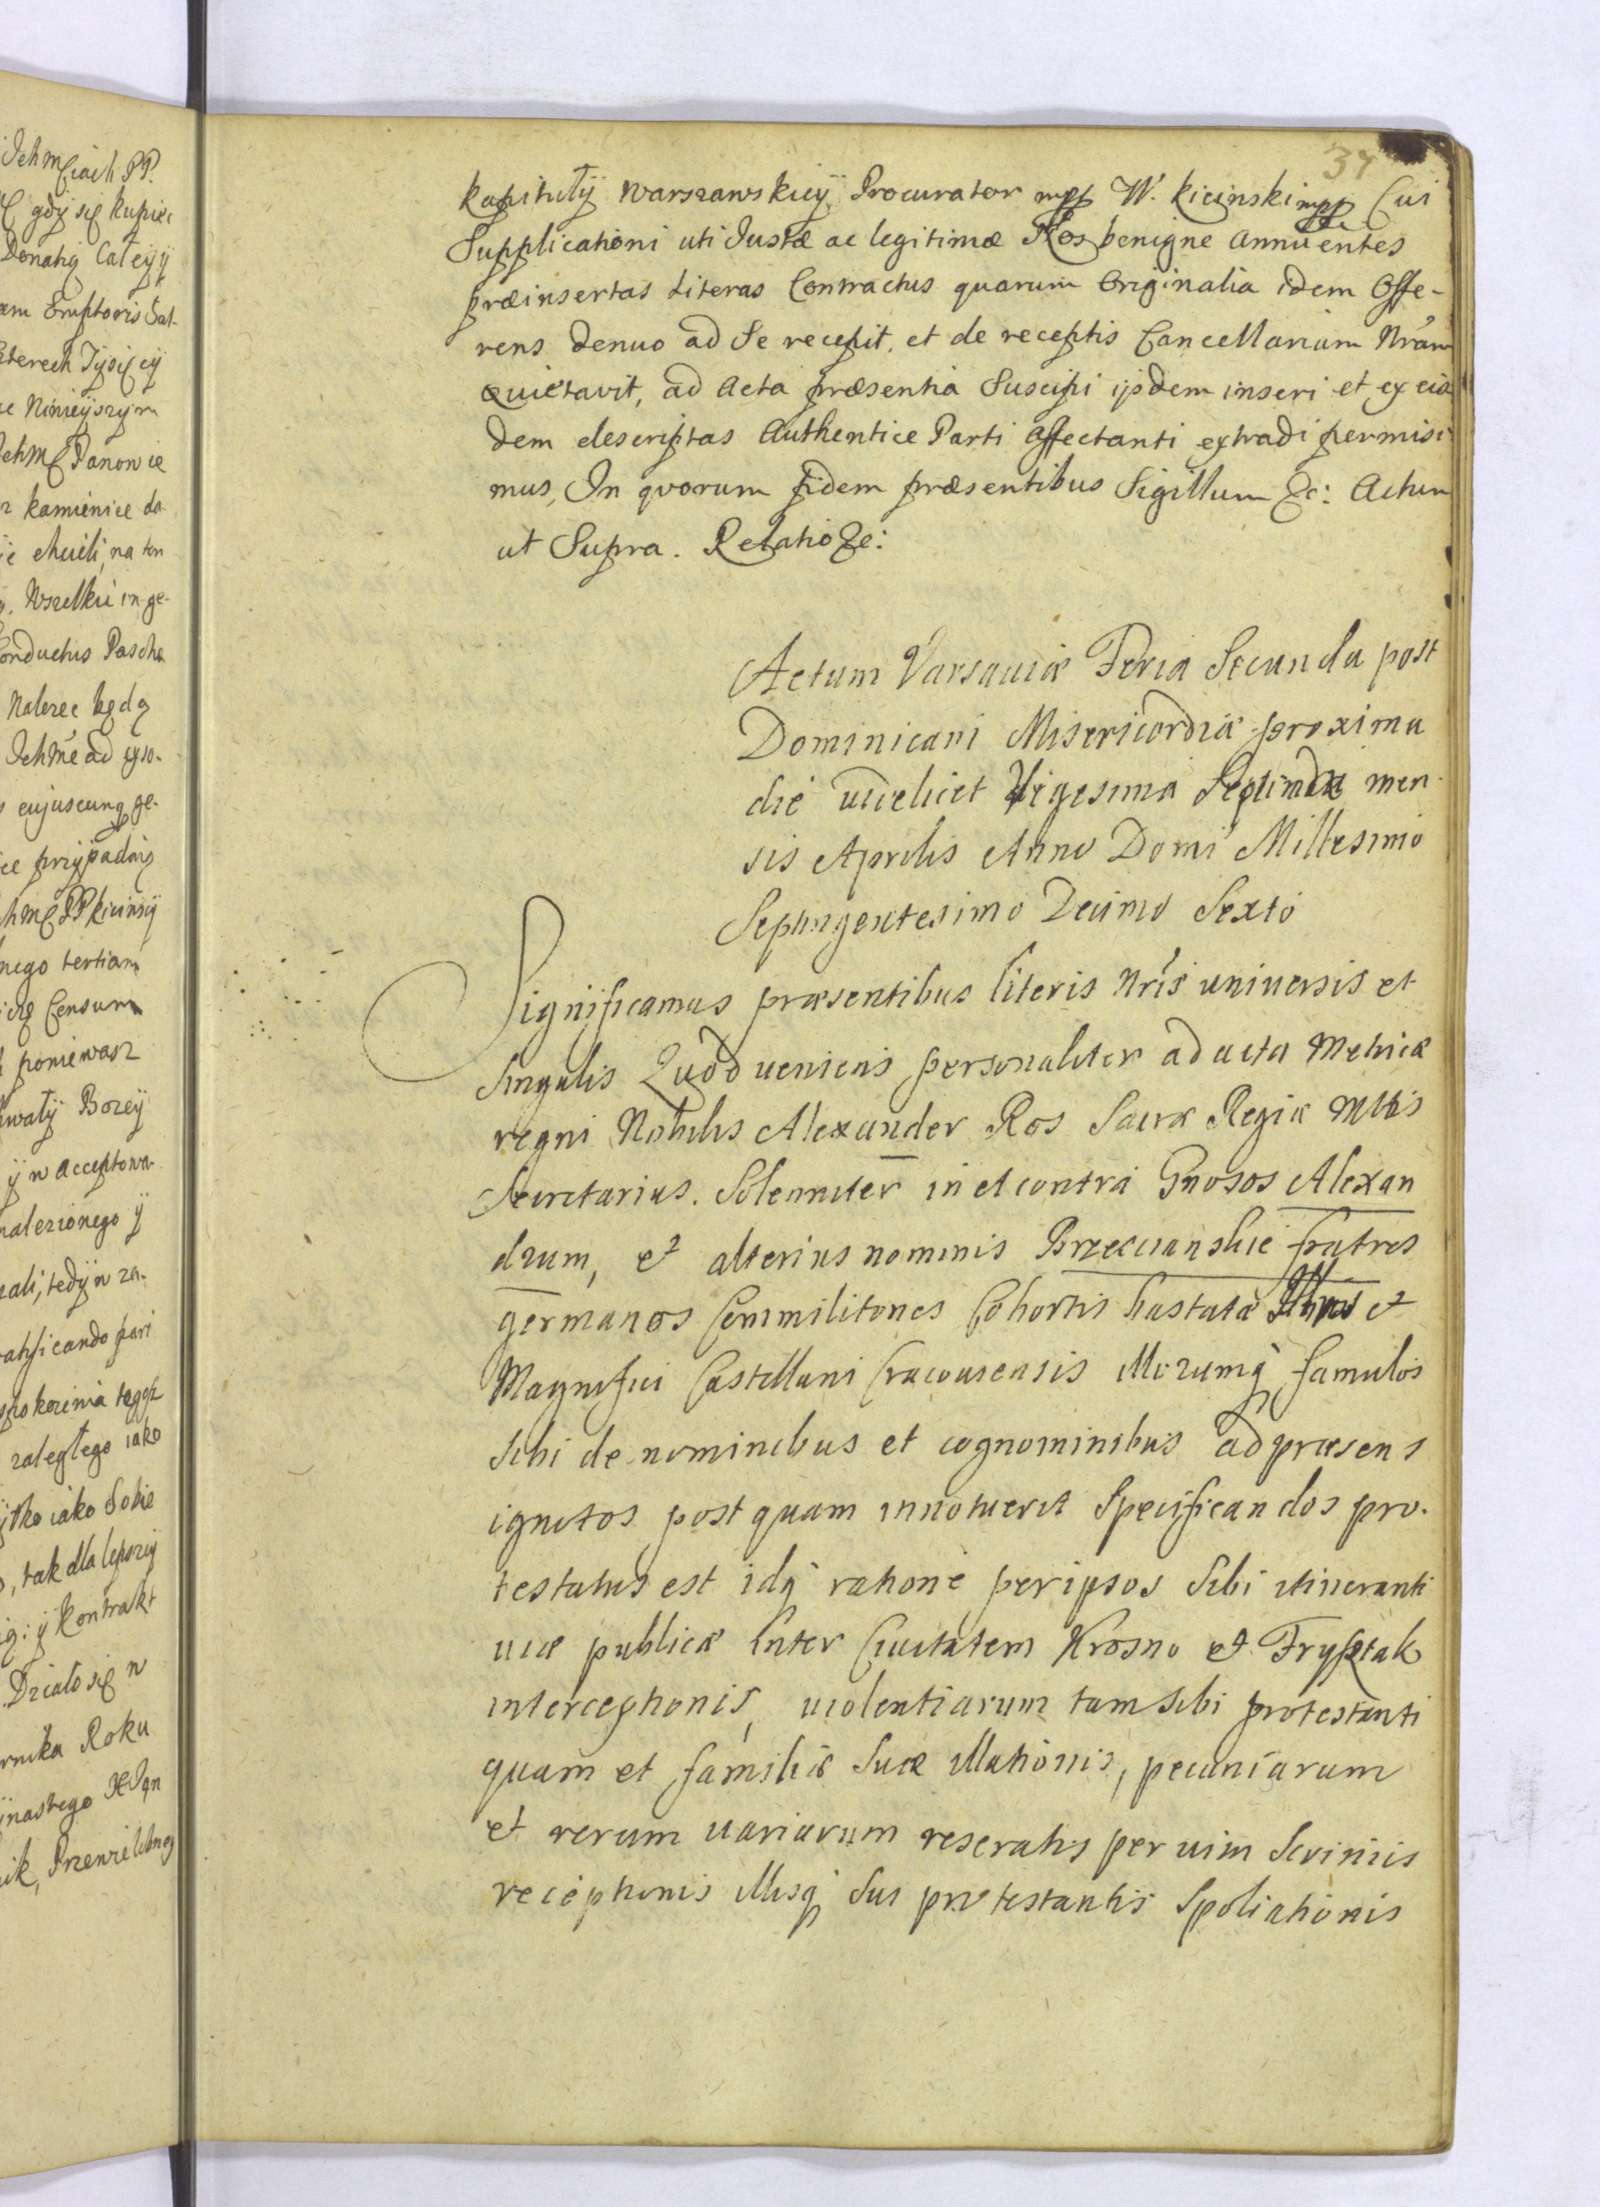 Jehmciach PP.
gdy się kupiec
Donatią Całey y
am Emptoris Sal-
zterech Tysięcy
Ninieyszym
Jehmć Panowie
kamienice do
chwili, na ten
Wszelkie in ge-
onductus Pascha
Nalezec będą
Jehmć ad
cujuscunq ge-
przypadaią
hmć PP Kicinscy
nego tertiam
Censum
poniewasz
waly Bozey
y w acceptowa-
nalezionego y
zali, tedy w za-
atificando pari
spokoienia tegoż
zaległego iako
ytko iako Sobie
, tak dla lepszey
y Kontrakt
Działo się w
rnika Roku
ynastego
ik,
37
Kapituły Warszawskiey Procurator mpp W. Kicinski mpp Cui
Supplicationi uti Justæ ac legitimæ Nos benigne annuentes
præinsertas Literas Contractus quarum Originalia idem Offe-
rens denuo ad Se recepit, et de receptis Cancellariam Nram
Quietavit, ad Acta præsentia Suscipi ijsdem inseri et ex eis
dem descriptas Authentice Parti affectanti extradi permisi
mus, In quorum fidem præsentibus Sigillum &c: Actum
ut Supra. Relatio &c:
Actum Varsaviæ Feria Secunda post
Dominicam Misericordiæ proxima
die videlicet Vigesima Septima men-
sis Aprilis Anno Domi Millesimo
Septingentesimo Decimo Sexto
Significamus præsentibus literis Nris universis et
Singulis Quod veniens personaliter ad acta Metricæ
regni Nobilis Alexander Ros Sacræ Regiæ Mttis
Secretarius. Solenniter in et contra Gnosos Alexan
drum, et alterius nominis Brzeczianskie fratres
germanos Commilitones Cohortis hastatæ Illmi et
Magnifici Castellani Cracoviensis illorumq famulos
Sibi de nominibus et cognominibus ad præsens
ignotos postquam innotuerit Specificandos pro-
testatus est idq ratione per ipsos Sibi itineranti
viæ publicæ Inter Civitatem Krosno et Frysztak
interceptionis, violentiarum tam sibi protestanti
quam et familiæ Suæ illationis, pecuniarum
et rerum variarum reseratis per vim Scriniis
receptionis illisq Sui protestantis Spoliationis